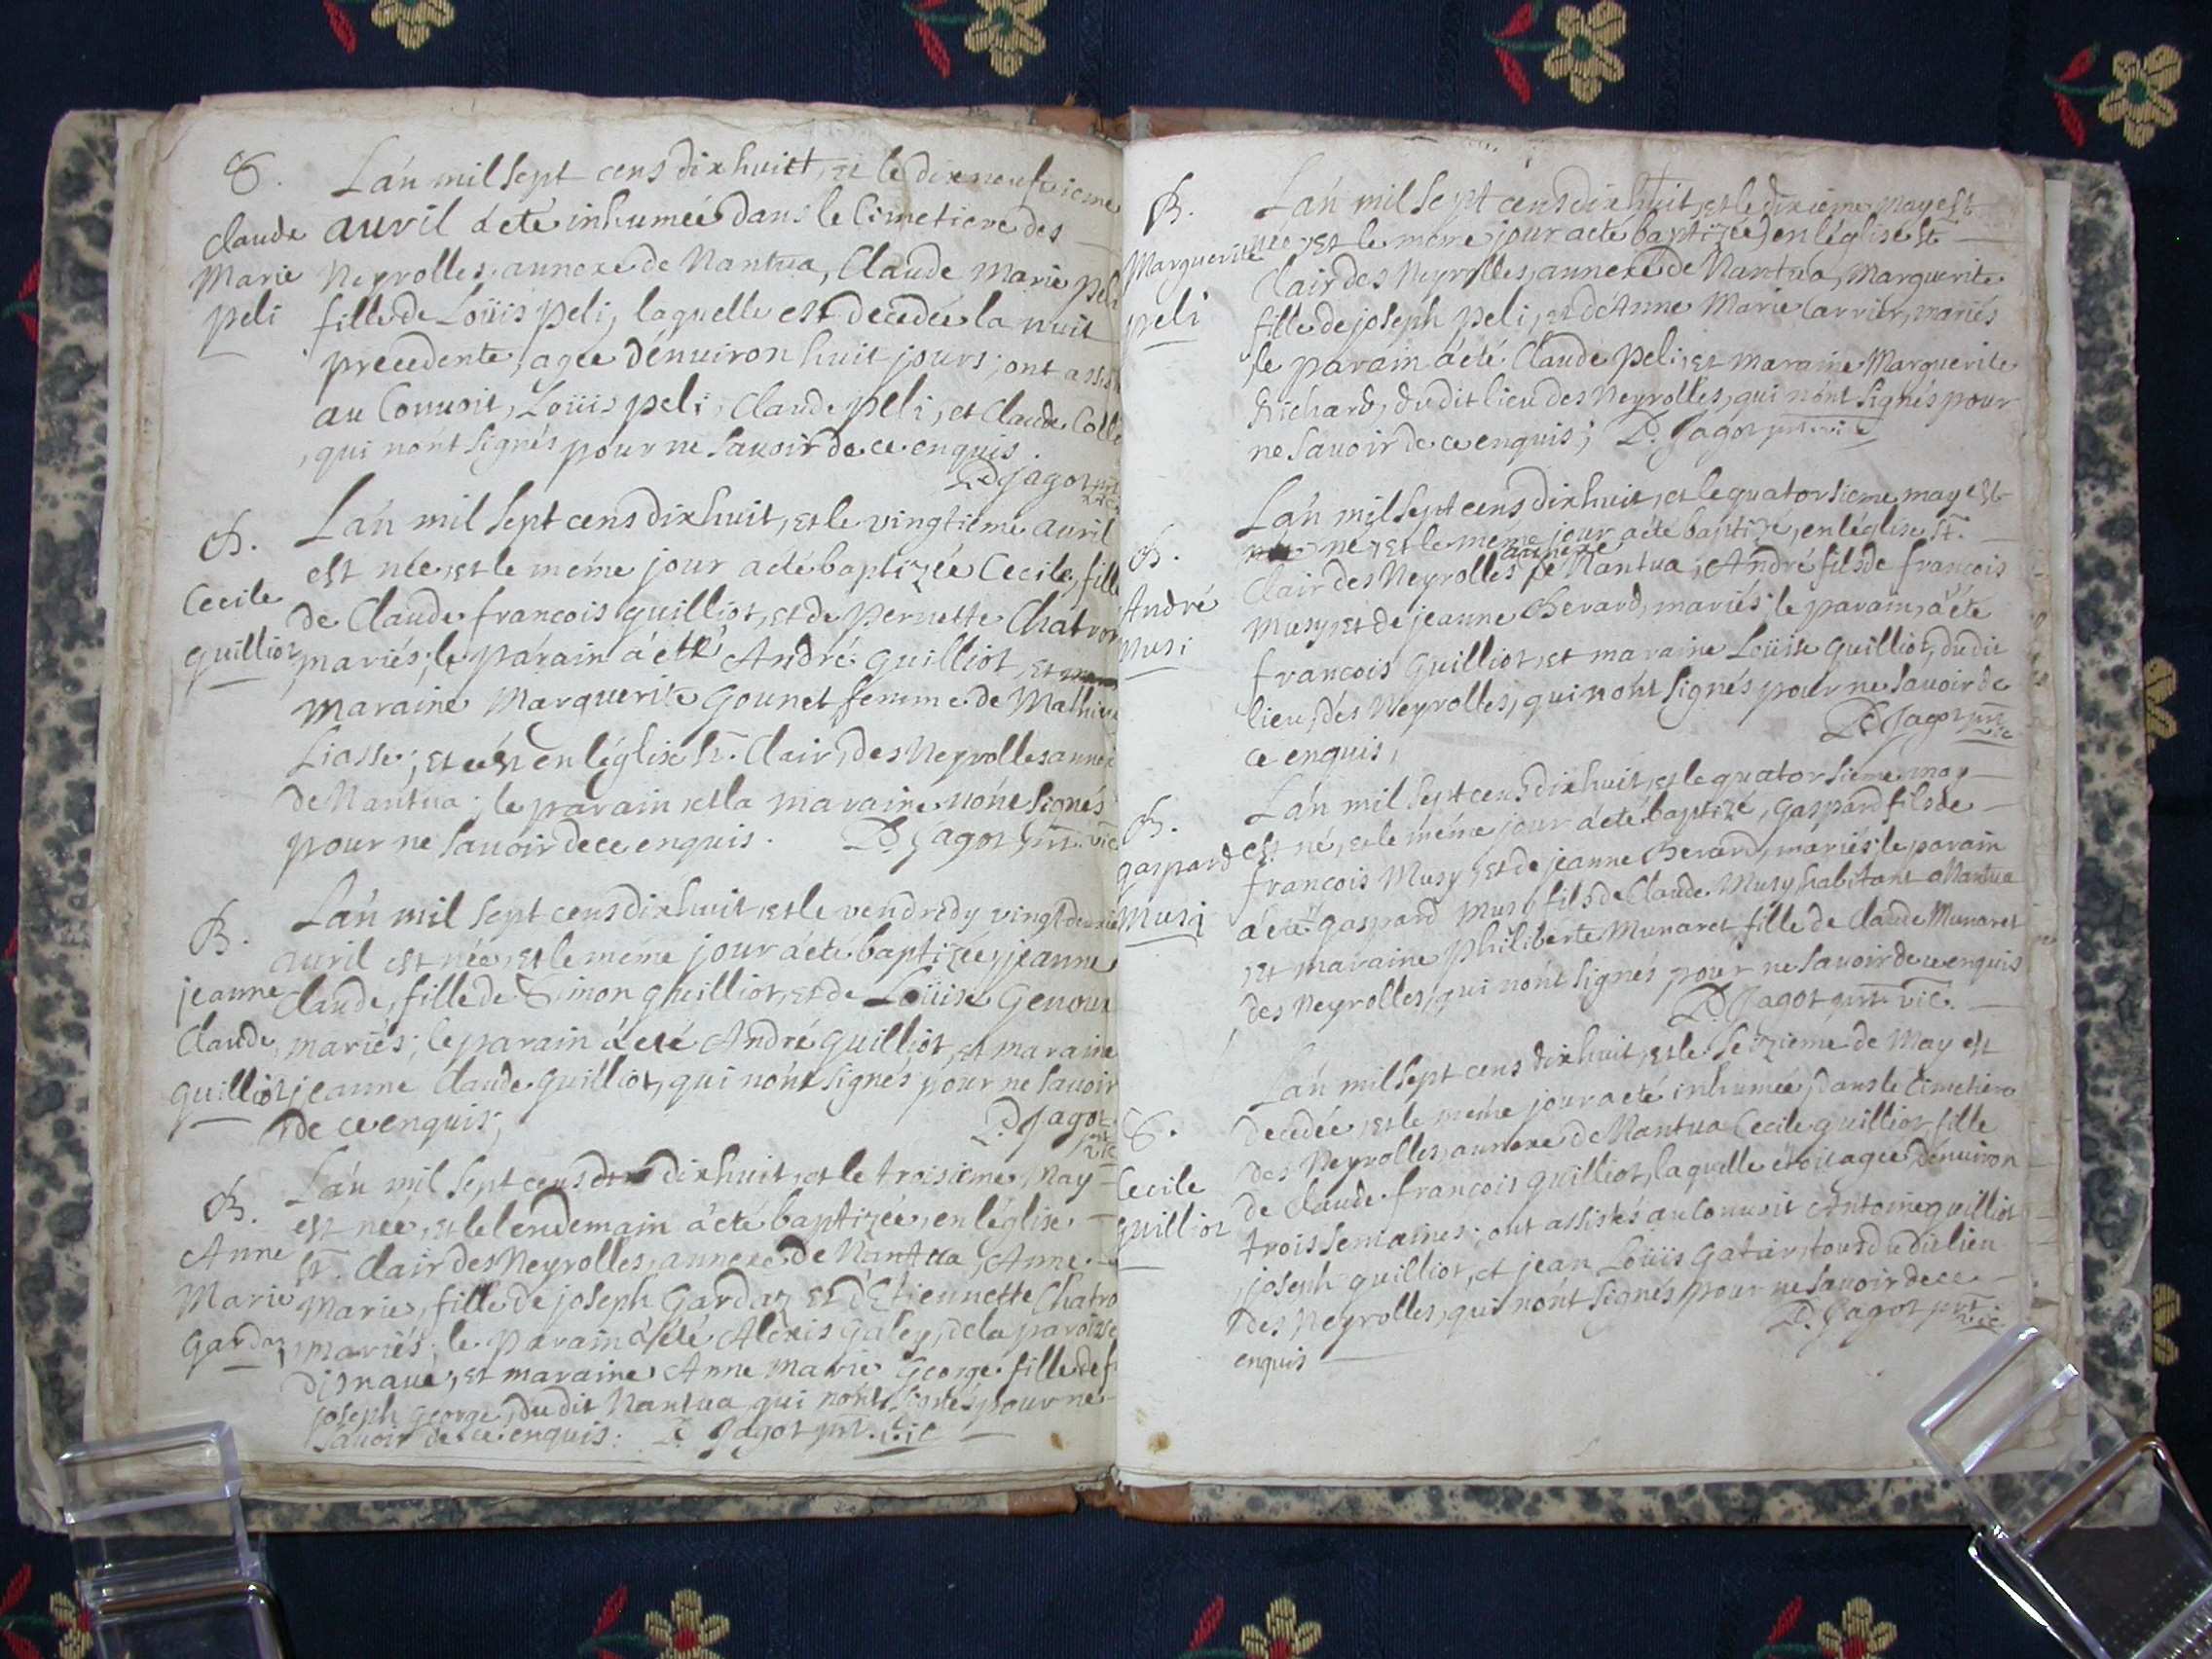 S.
Claude
Marie
peli
L'an mil sept cens dix huitt, et le dixneufvieme
avril a eté inhumée dans le Cimetiere des
Neyrolles, annexe de Nantua, Claude Marie peli
fille de Loüis peli, laquelle est decedée la nuit
precedente, agée d'environ huit jours; ont
au Convoit, Loüis peli, Claude peli, et Claude
, qui n'ont signés pour ne savoir de ce enquis.
D Jagot prt
vic
B.
Cecile
guilliot
L'an mil sept cens dix huit, et le vingtieme avril
est née, et le méme jour a eté baptizée Cecile, fille
de Claude francois guilliot, et de Pernette Chatron
mariés; le parain a eté André guilliot, et
maraine Marguerite Gounet femme de Mathieu
Liasse; et en l'église St. Clair, des Neyrolles annexe
de Nantua; le parain et la maraine n'ont signés
pour ne savoir de ce enquis. D. Jagot prt. vic
B.
jeanne
Claude
guilliot
L'an mil sept cens dix huit, et le vendredy vingt
avril est née, et le méme jour a eté baptizée, jeanne
Claude, fille de Simon guilliot, et de Loüise Genoux
mariés; le parain a eté André guilliot, et maraine
jeanne Claude guilliot, qui n'ont signés pour ne savoir
de ce enquis;
D. Jagot
prt
vic
B.
Anne
Marie
Gardaz
L'an mil sept cens dix huit, et le troisieme May
est née, et le lendemain a eté baptizée, en l'église
St. Clair des Neyrolles, annexe de Nantua, Anne
Marie, fille de joseph Gardaz et d'Etiennette Chatro
mariés; le parain a eté Alexis galey, de la paroisse
, et maraine Anne Marie George fille de f
joseph George, du dit Nantua qui n'ont signés pour ne
savoir de ce enquis. D. Jagot prt. vic
B.
Marguerite
peli
L'an mil sept cens dix huit, et le dixieme May est
née, et le méme jour a eté baptizée, en l'église St
Clair des Neyrolles, annexe de Nantua, Marguerite
fille de joseph peli, et de Anne Marie Carrier, mariés
, le parain a eté Claude peli, et maraine Marguerite
Richard, du dit lieu des Neyrolles, qui n'ont signés pour
ne savoir de ce enquis; D. Jagot prt. vic
B.
André
Musi
L'an mil sept cens dix huit, et le quatorsieme may est
né, et le méme jour a eté baptizé, en l'église St.
annexe
Clair des Neyrolles de Nantua, André fils de francois
Musy, et de jeanne Berard, mariés; le parain, a eté
francois Guilliot, et maraine Loüise guilliot, du dit
lieu, des Neyrolles, qui n'ont signés pour ne savoir de
ce enquis,
D. Jagot prt
vic
B.
gaspard
Musi
L'an mil sept cens dix huit, et le quatorsieme may
est né, et le méme jour a eté baptizé, gaspard fils de
francois Musy, et de jeanne Berard, mariés; le parain
a eté gaspard Musy fils de Claude Musy habitant a Nantua
, et maraine philiberte Munaret, fille de Claude Munaret
des Neyrolles, qui n'ont signés pour ne savoir de ce enquis
D. Jagot prt. vic.
S.
Cecile
guilliot
L'an mil sept cens dix huit, et le seizieme de May est
decedée, et le méme jour a eté inhumée, dans le Cimetiere
des Neyrolles, annexe de Nantua Cecile guilliot, fille
de Claude francois guilliot, laquelle etoit agée d'environ
trois semaines; ont assistés au Convoit Antoine guilliot
, joseph guilliot, et jean Loüis, tous du dit lieu
des Neyrolles, qui n'ont signés pour ne savoir de ce
enquis
D. Jagot prt
vic